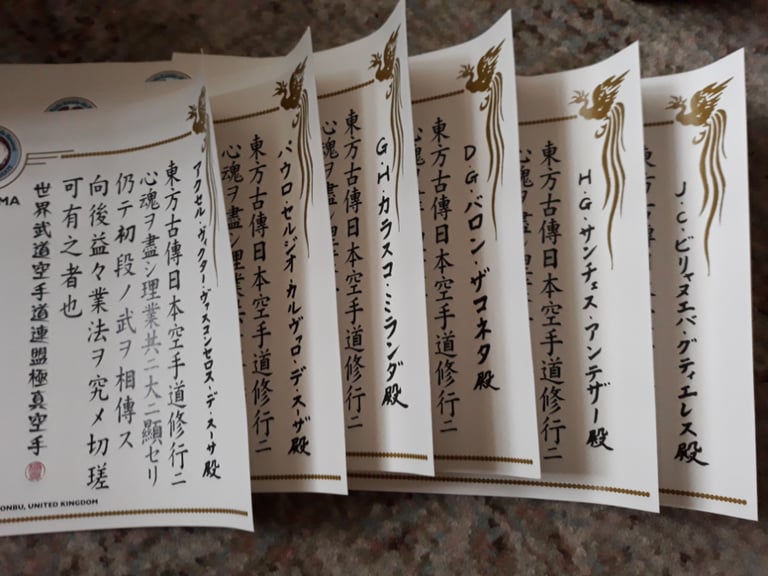 アクセル・ヴィクター・ヴァスコンセロス・デ・スーサ殿
東方古傳日本空手道修行ニ
心魂ヲ盡シ理業共ニ大ニ顯セリ
仍テ初段ノ武ヲ相傳ス
向後益々業法ヲ究メ切瑳
可有之者也
世界武道空手道連盟極真空手
MA
ONBU, UNITED KINGDOM
パウロ・セルジオ・カルヴァロ・デ・スーザ殿
東方古傳日本空手道修行ニ
心魂ヲ盡シ理業
G・H・カラスコ・ミランダ殿
東方古傳日本空手道修行ニ
心魂ヲ
D・G・バロン・ザコネタ殿
東方古傳日本空手道修行ニ
H・G・サンチェス・アンテザー殿
東方古傳日本空手道修行ニ
J・C・ビリャヌエバ・グティエレス殿